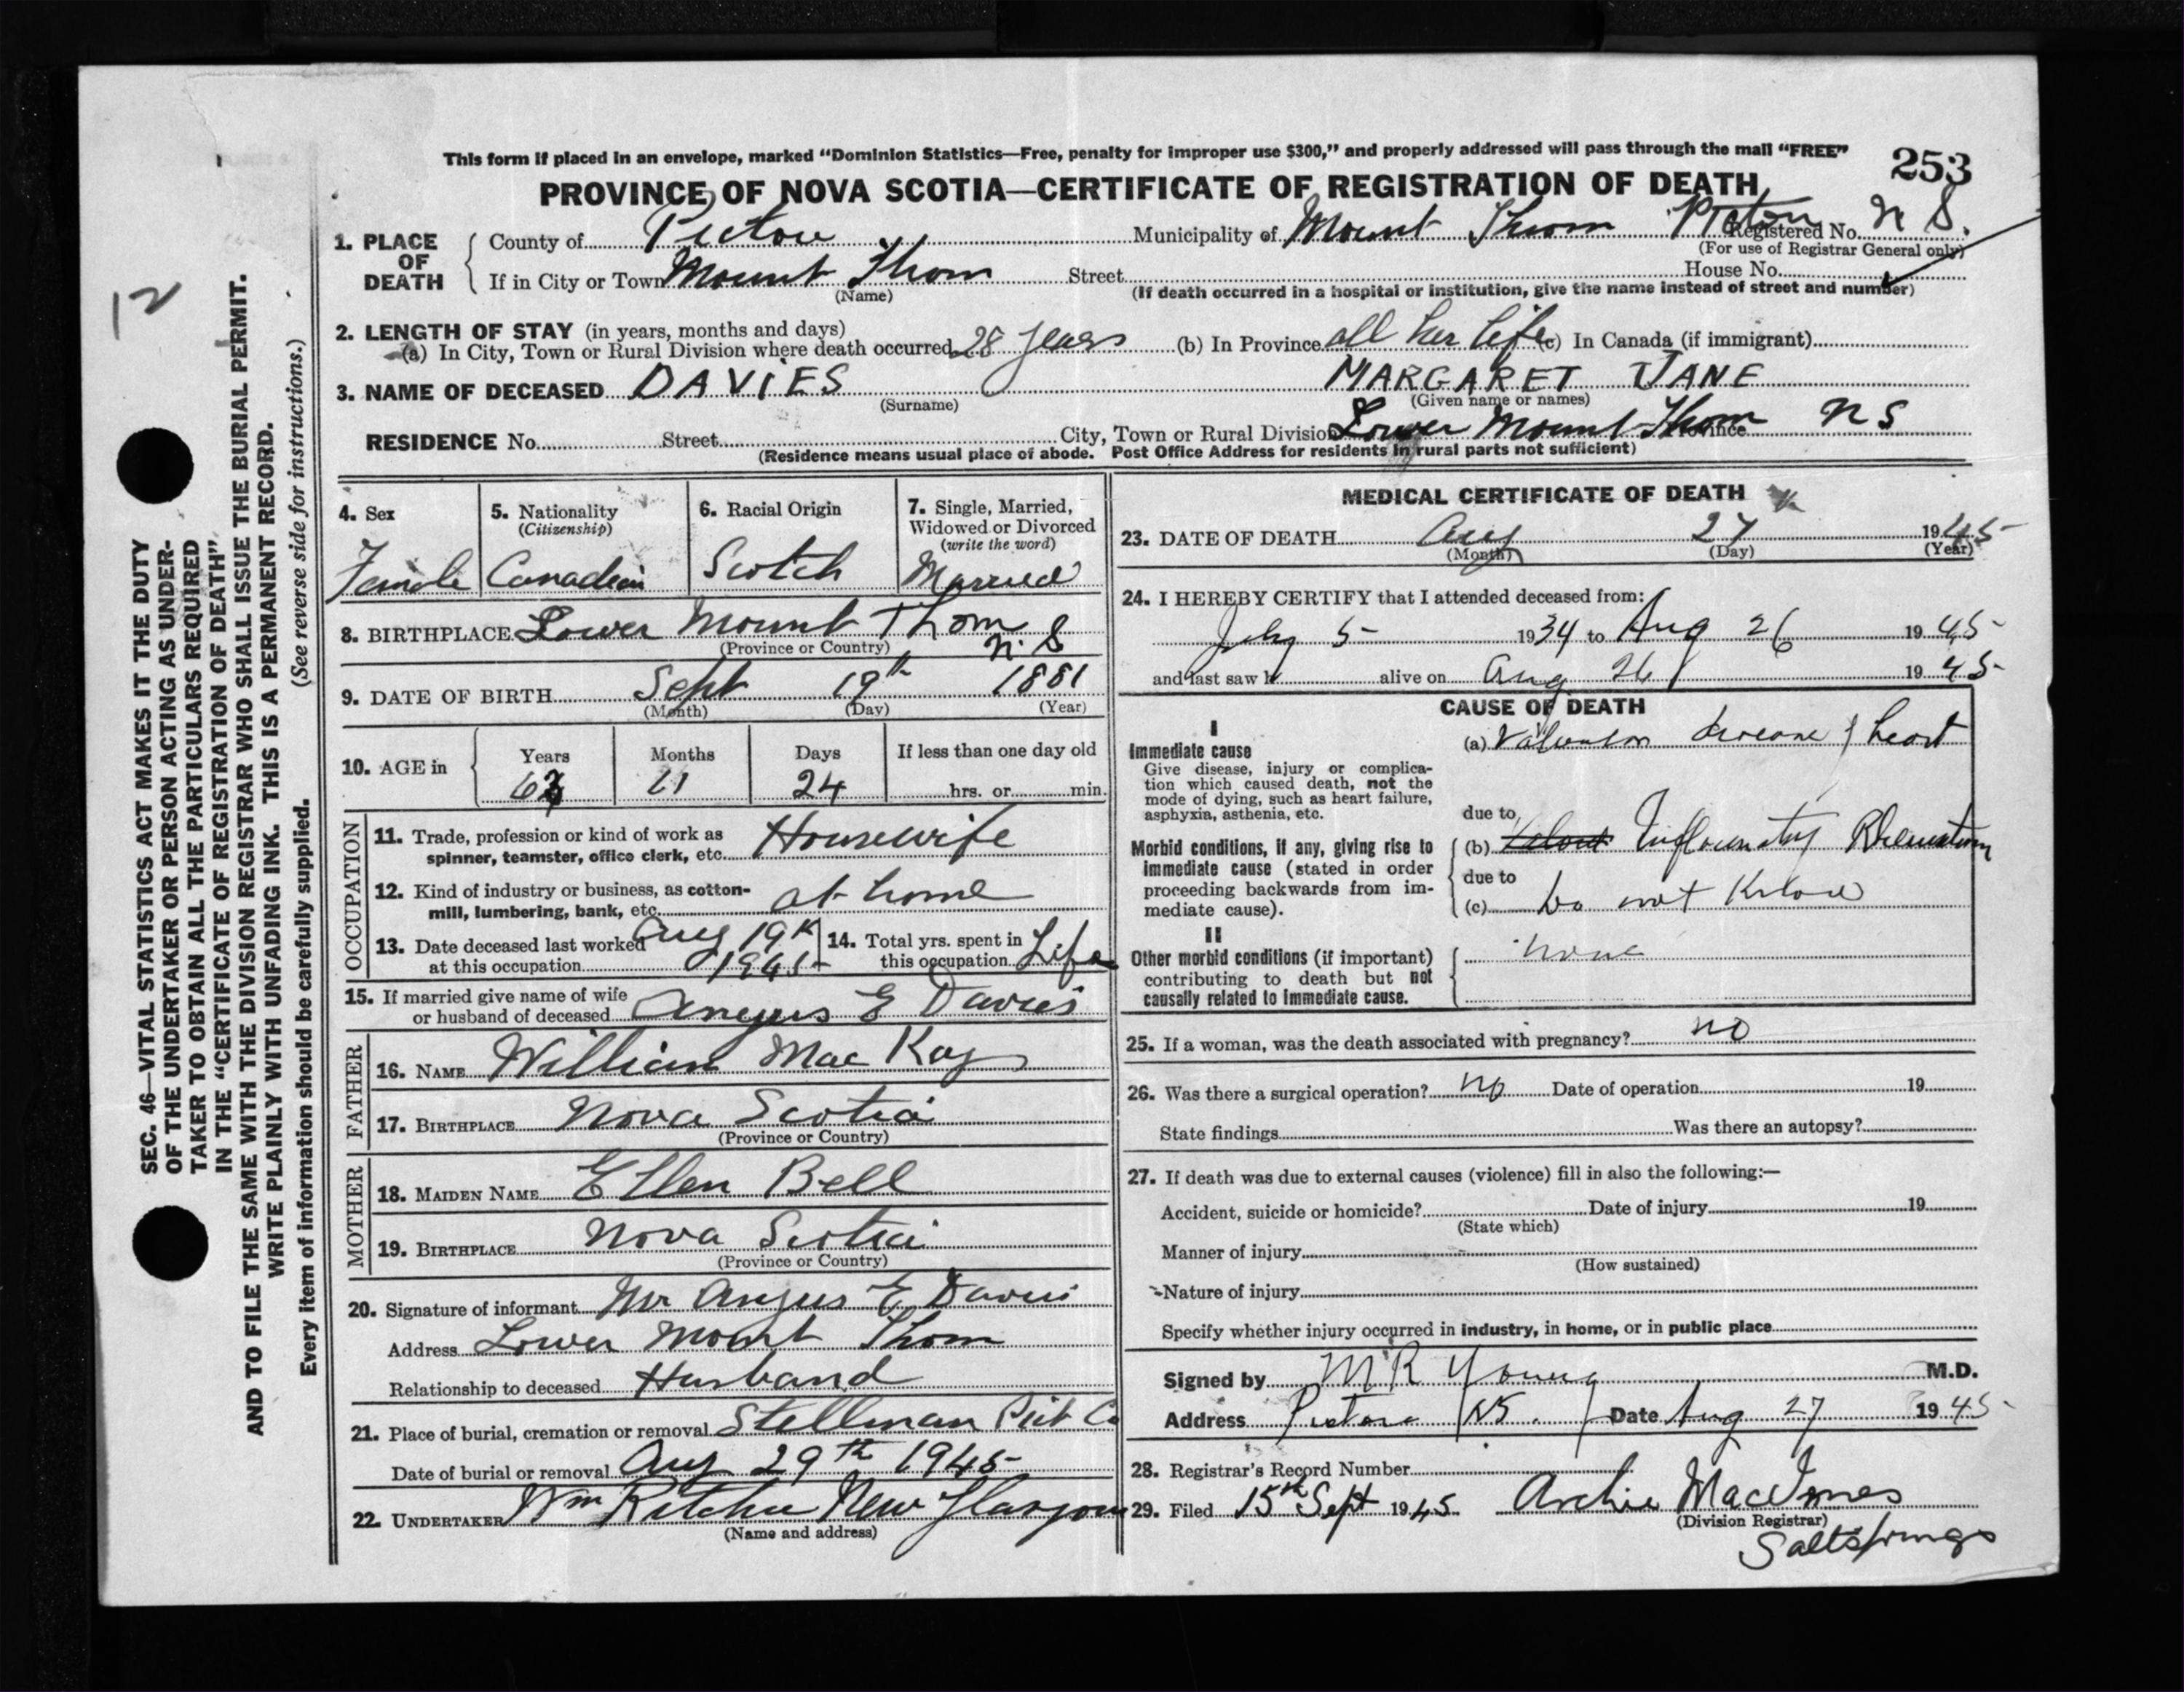 This form if placed in an envelope, marked “Dominion Statistics—Free, penalty for improper use $300,” and properly addressed will pass through the mail “FREE”
253
PROVINCE OF NOVA SCOTIA—CERTIFICATE OF REGISTRATION OF DEATH
1. PLACE OF DEATH County of Pictou Municipality of Mount Thom Pictou Registered No. N S.
(For use of Registrar General only)
If in City or Town Mount Thom Street House No.
(Name) (If death occurred in a hospital or institution, give the name instead of street and number)
2. LENGTH OF STAY (in years, months and days)
(a) In City, Town or Rural Division where death occurred 28 years (b) In Province all her life (c) In Canada (if immigrant)
3. NAME OF DECEASED DAVIES MARGARET JANE
(Surname) (Given name or names)
RESIDENCE No. Street City, Town or Rural Division Lower Mount Thom Province N S
(Residence means usual place of abode. Post Office Address for residents in rural parts not sufficient)
4. Sex
Female
5. Nationality
(Citizenship)
Canadian
6. Racial Origin
Scotch
7. Single, Married,
Widowed or Divorced
(write the word)
Married
8. BIRTHPLACE Lower Mount Thom
(Province or Country) N. S
9. DATE OF BIRTH Sept 19th 1881
(Month) (Day) (Year)
10. AGE in Years Months Days If less than one day old
63 11 24 hrs. or min.
OCCUPATION
11. Trade, profession or kind of work as
spinner, teamster, office clerk, etc. Housewife
12. Kind of industry or business, as cotton-
mill, lumbering, bank, etc. at home
13. Date deceased last worked Aug 19th
at this occupation 1945
14. Total yrs. spent in
this occupation Life
15. If married give name of wife
or husband of deceased Angus E Davies
FATHER
16. NAME William Mac Kay
17. BIRTHPLACE Nova Scotia
(Province or Country)
MOTHER
18. MAIDEN NAME Ellen Bell
19. BIRTHPLACE Nova Scotia
(Province or Country)
20. Signature of informant Mr Angus E Davies
Address Lower Mount Thom
Relationship to deceased Husband
21. Place of burial, cremation or removal Stellman Pict Co
Date of burial or removal Aug 29th 1945
22. UNDERTAKER Wm Ritchie New Glasgow
(Name and address)
MEDICAL CERTIFICATE OF DEATH
23. DATE OF DEATH Aug 27 1945
(Month) (Day) (Year)
24. I HEREBY CERTIFY that I attended deceased from:
July 5 1934 to Aug 26 1945
and last saw h alive on Aug 26 1945
CAUSE OF DEATH
I
Immediate cause
Give disease, injury or complica-
tion which caused death, not the
mode of dying, such as heart failure,
asphyxia, asthenia, etc.
(a) Valvular disease of heart
due to
Morbid conditions, if any, giving rise to
immediate cause (stated in order
proceeding backwards from im-
mediate cause).
(b) Inflammatory Rheumatism
due to
(c) Do not Know
II
Other morbid conditions (if important)
contributing to death but not
causally related to immediate cause.
none
25. If a woman, was the death associated with pregnancy? no
26. Was there a surgical operation? no Date of operation 19
State findings Was there an autopsy?
27. If death was due to external causes (violence) fill in also the following:—
Accident, suicide or homicide? Date of injury 19
(State which)
Manner of injury
(How sustained)
Nature of injury
Specify whether injury occurred in industry, in home, or in public place
Signed by M R Young M.D.
Address Pictou N S. Date Aug 27 1945
28. Registrar's Record Number
29. Filed 15th Sept 1945 Archie MacInnes
(Division Registrar)
Saltsprings
12
SEC. 46—VITAL STATISTICS ACT MAKES IT THE DUTY
OF THE UNDERTAKER OR PERSON ACTING AS UNDER-
TAKER TO OBTAIN ALL THE PARTICULARS REQUIRED
IN THE “CERTIFICATE OF REGISTRATION OF DEATH”
AND TO FILE THE SAME WITH THE DIVISION REGISTRAR WHO SHALL ISSUE THE BURIAL PERMIT.
WRITE PLAINLY WITH UNFADING INK. THIS IS A PERMANENT RECORD.
Every item of information should be carefully supplied. (See reverse side for instructions.)